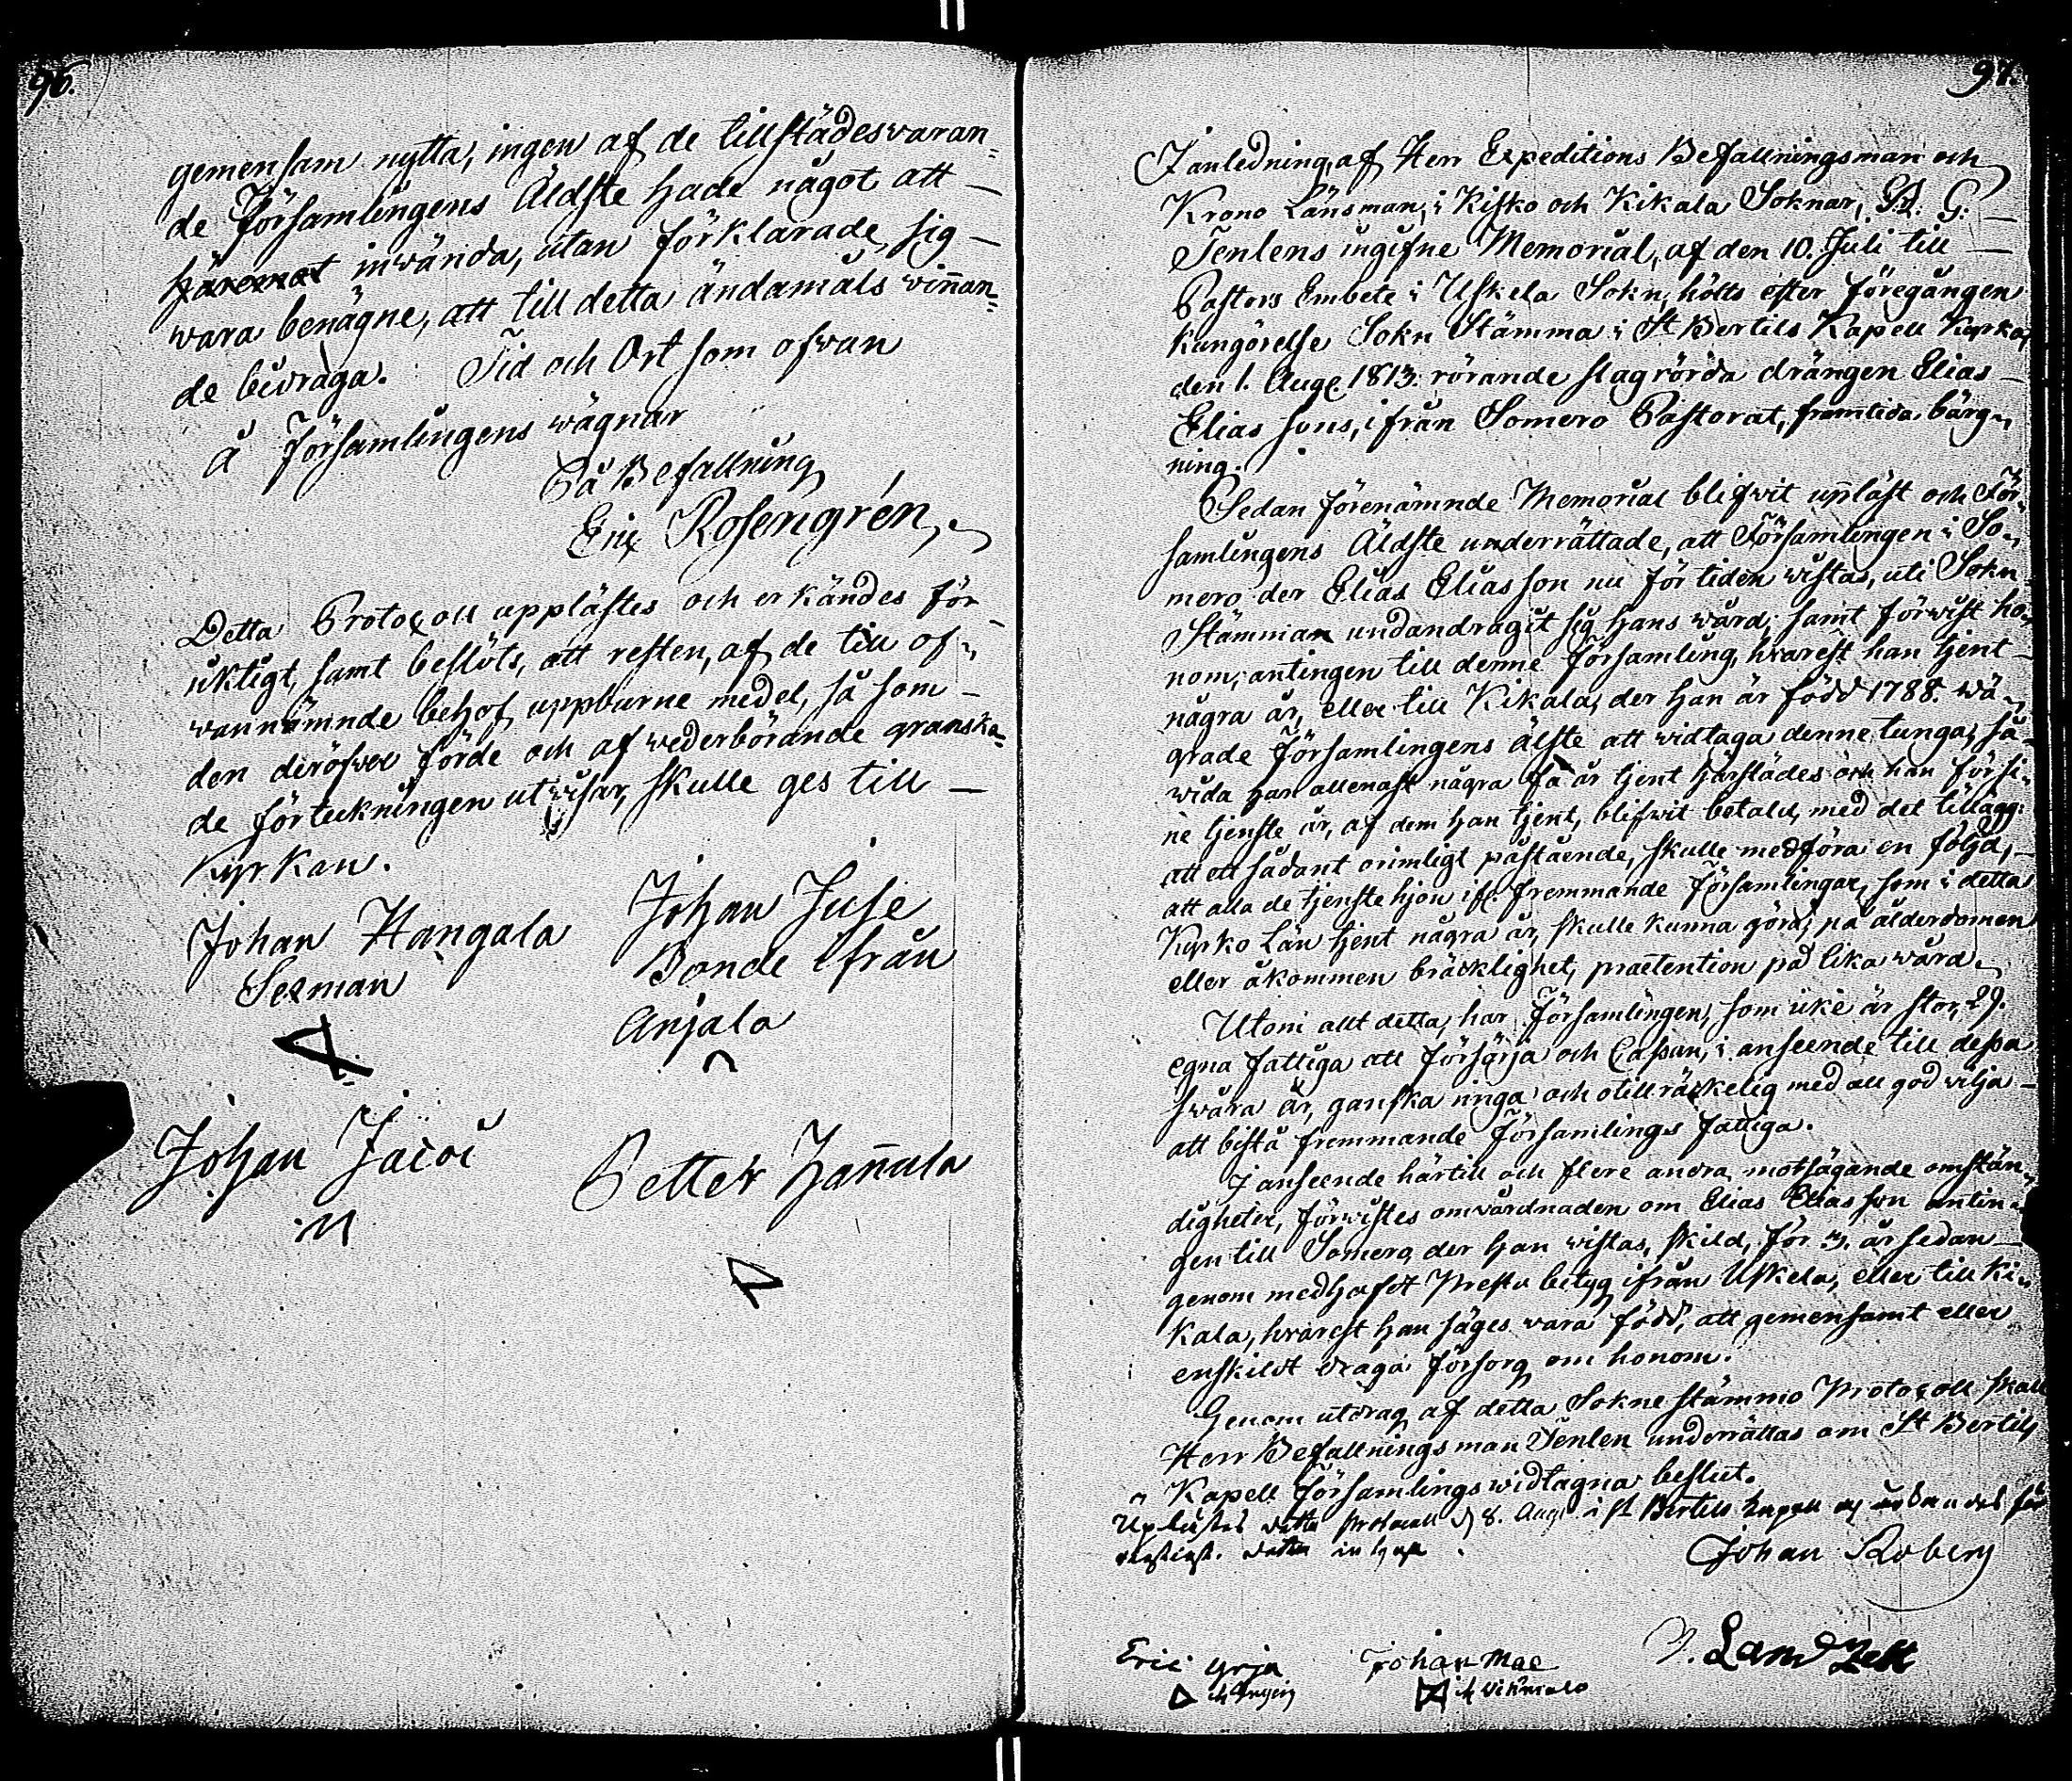 96.
gemensam nytta, ingen af de tillstädesvaran=
de Församlingens Äldste hade något att
häremot inwända, utan förklarade sig
wara benägne, att till detta ändamåls winnan=
de bidraga. Tid och Ort som ofvan
å Församlingens wägnar
På Befallning
Eric Rosengrén.
Detta Protocoll upplästes och erkändes för
riktigt, samt beslöts, att resten, af de till of=
wannämnde behof uppburne medel, så som
den deröfver förde och af wederbörande granska=
de förteckningen utwisar, skulle ges till
Kyrkan.
Johan Hangala
Sexman
Johan Juse
Bonde ifrån
Anjala
Johan Jacoi
Petter Hannula
97.
I anledning af Herr Expeditions Befallningsman och
Krono Länsman i Kisko och Kikala Soknar, G.
Tenlens ingifne Memorial, af den 10. Juli till
Pastors Embete i Uskela Sokn, hölts efter föregången
kungörelse Sokn Stämma i St Bertils Kapell Kyrka,
den 1. Aug. 1813. rörande slagrörda drängen Elias
Elias sons, ifrån Somero Pastorat, framtida bärg=
ning.
Sedan förenämnde Memorial blifwit uppläst och För=
samlingens Äldste underrättade, att Församlingen i So=
mero der Elias Elias son nu för tiden wistas, uti Sokn
Stämman undandragit sig hans wård, samt förwist ho=
nom, antingen till denne Församling, hwarest han tjent
några år, eller till Kikala, der han är född 1788. wä=
grade Församlingens älste att widtaga denne tunga, så
wida han allenast några få år tjent härstädes och han för si=
ne tjenste år, af dem han tjent, blifwit betald, med det tillägg:
att ett sådant orimligt påstående, skulle medföra en följd,
att alla de tjenste hjon ifr. fremmande Församlingar, som i detta
Kyrko Län tjent några år, skulle kunna göra, på ålderdomen
eller åkommen bräcklighet, praetention på lika wård.
Utom allt detta, har Församlingen, som icke är stor, 29.
egna fattiga att försörja och Cassan, i anseende till dessa
swåra år, ganska ringa och otillräckelig med all god wilja
att bistå fremmande Församlings fattiga.
I anseende härtill och flere andra motsägande omstän=
digheter, förwistes omwårdnaden om Elias Elias son antin=
gen till Somero, der han wistas, skild, för 3. år sedan
genom medhafet Preste betyg ifrån Uskela, eller till Ki=
kala, hwarest han säges wara född, att gemensamt eller
enskildt draga försorg om honom.
Genom utdrag af detta Sokne stämmo Protocoll skall
Herr Befallningsman Tenlen underrättas om St Bertils
Kapell Församlings widtagna beslut.
Uplästes detta Protocoll d 8. Aug. i St Bertils Kapell
Johan Roberg
Eric Yrja
Johan Mae
J. Landzett